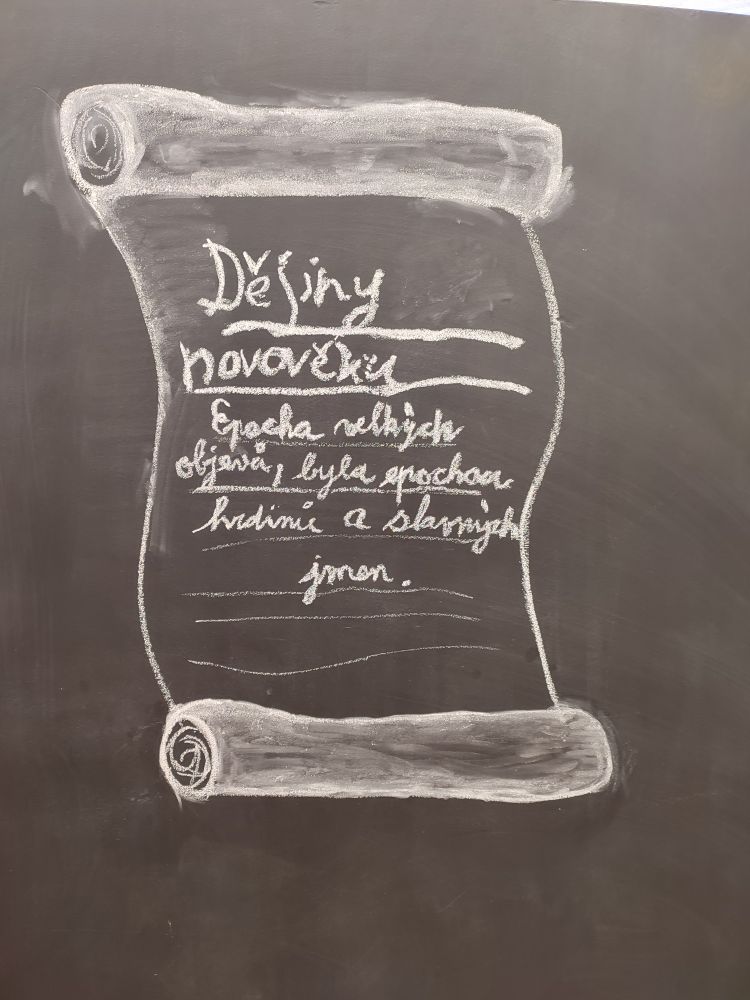 Dějiny
novověku
Epocha velkých
objevů, byla epochou
hrdinů a slavných
jmen.